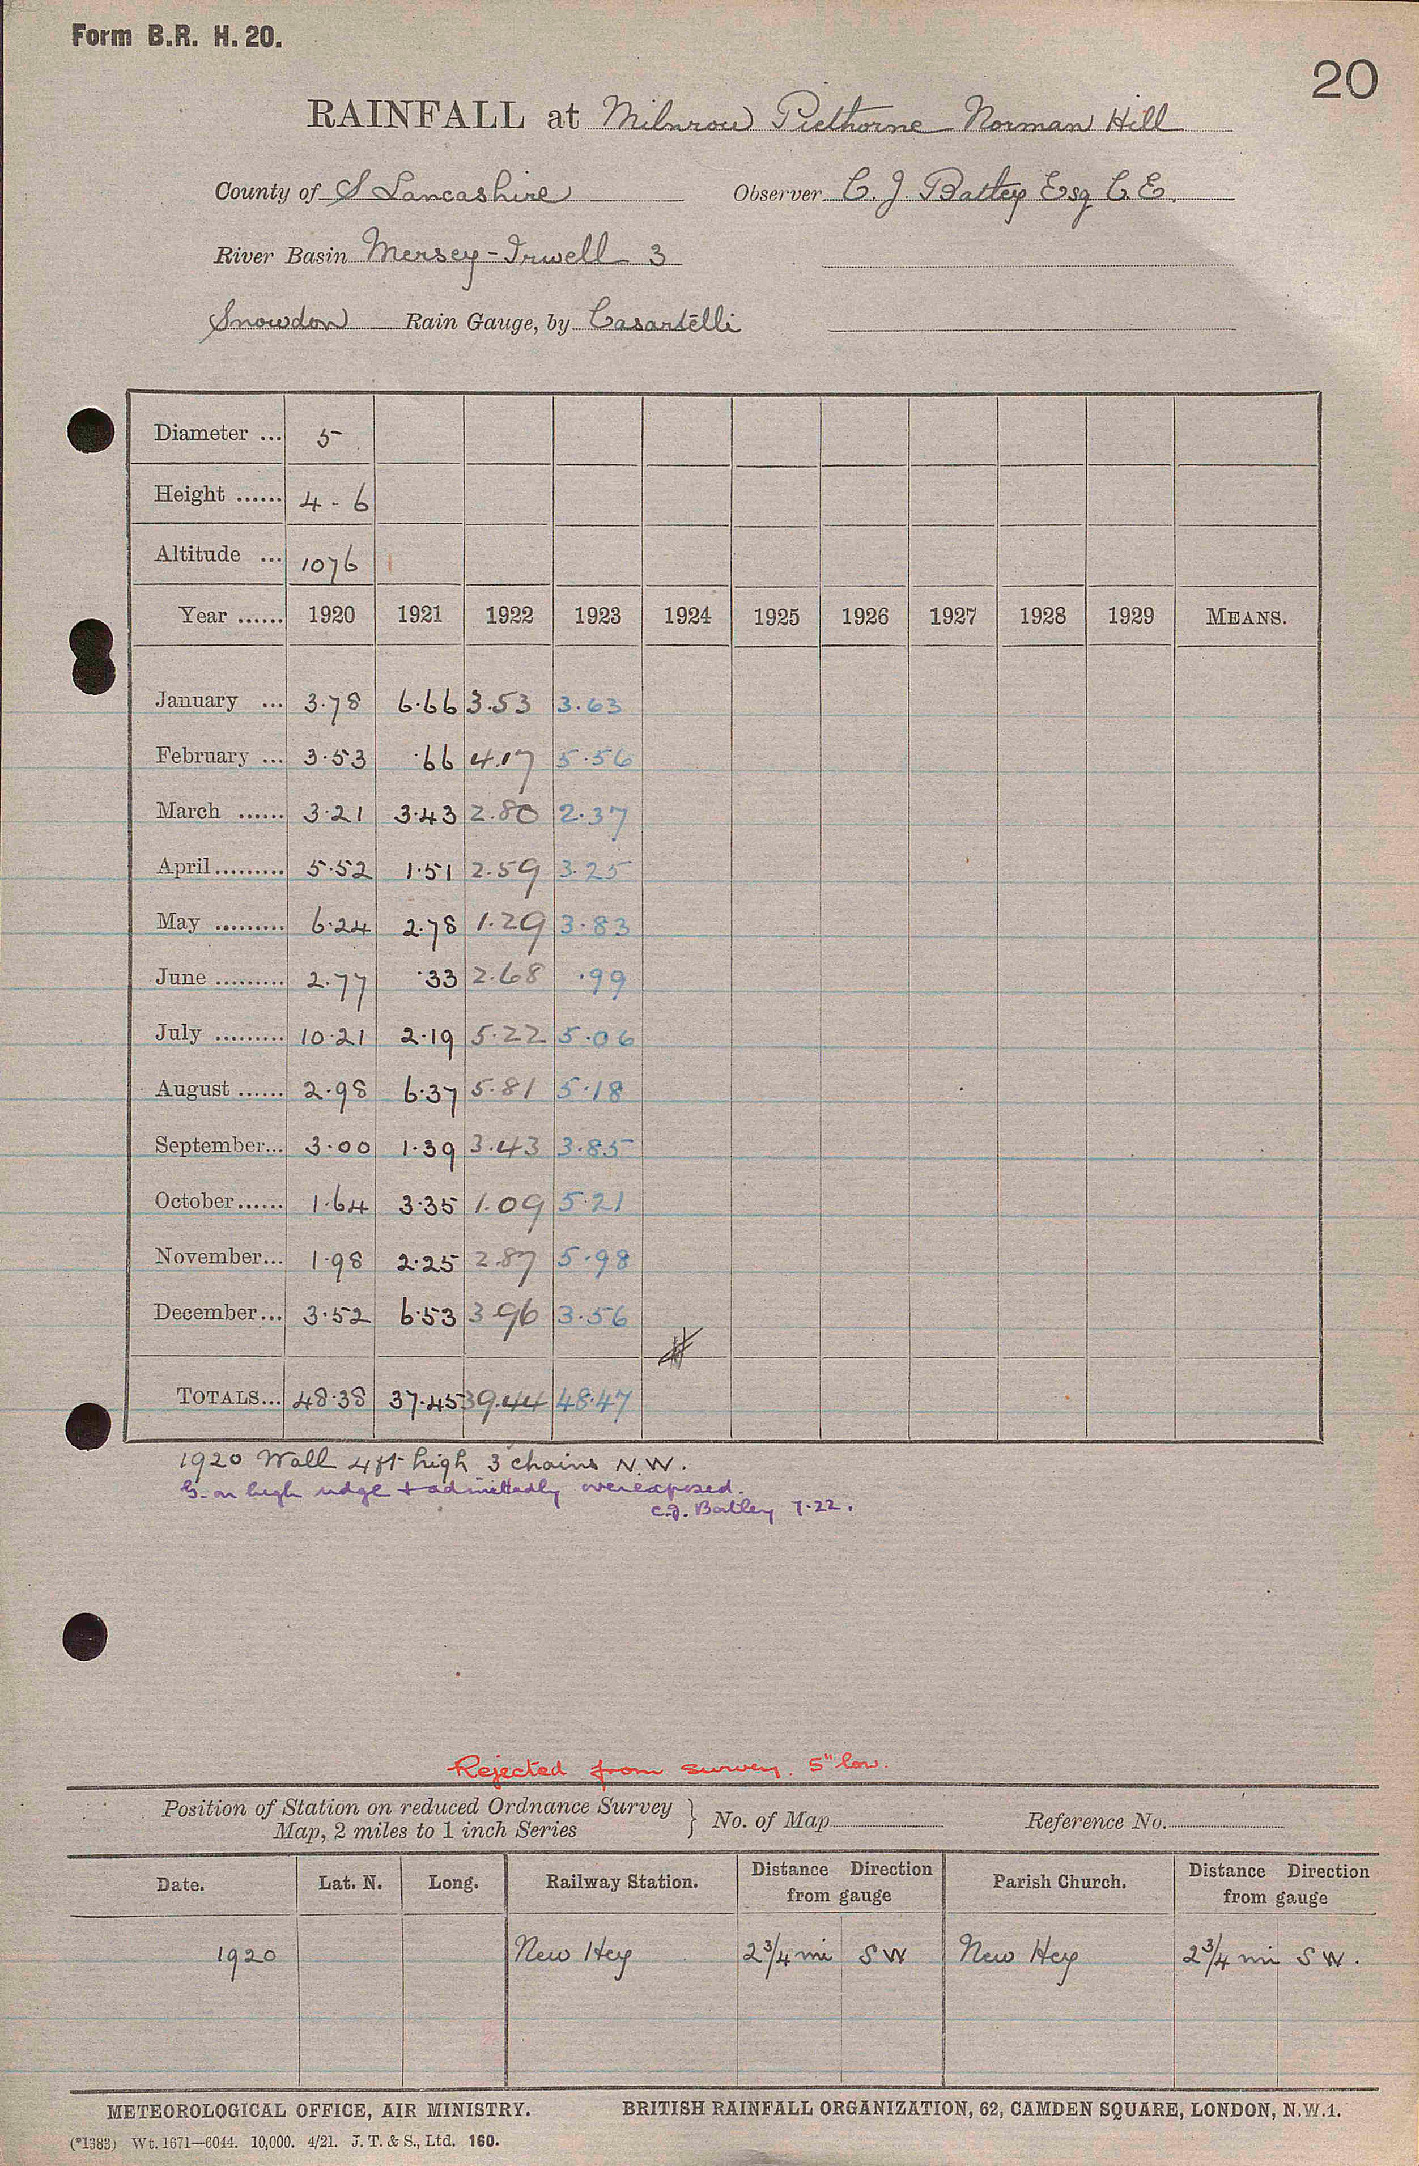 Form B.R. H. 20.
20
RAINFALL at Milnrow Piethorne Norman Hill
County of S Lancashire Observer C. J. Batley Esq C. E.
River Basin Mersey-Irwell 3
Snowdon Rain Gauge, by Casartelli
Diameter ... 5
Height ...... 4 - 6
Altitude ... 1076
Year ...... 1920 1921 1922 1923 1924 1925 1926 1927 1928 1929 MEANS.
January ... 3.78 6.66 3.53 3.63
February ... 3.53 .66 4.17 5.56
March ...... 3.21 3.43 2.80 2.37
April ......... 5.52 1.51 2.59 3.25
May ......... 6.24 2.78 1.29 3.83
June ......... 2.77 .33 2.68 .99
July ......... 10.21 2.19 5.22 5.06
August ...... 2.98 6.37 5.81 5.18
September... 3.00 1.39 3.43 3.85
October ...... 1.64 3.35 1.09 5.21
November... 1.98 2.25 2.87 5.98
December... 3.52 6.53 3.96 3.56
TOTALS... 48.38 37.45 39.44 48.47
1920 Wall 4 ft high 3 chains N.W.
G. on high ridge + admittedly overexposed.
C.J. Batley 7.22.
Rejected from survey. 5" low.
Position of Station on reduced Ordnance Survey
Map, 2 miles to 1 inch Series } No. of Map Reference No.
Date. Lat. N. Long. Railway Station. Distance Direction from gauge Parish Church. Distance Direction from gauge
1920 New Hey 2¾ mi S W New Hey 2¾ mi S W.
METEOROLOGICAL OFFICE, AIR MINISTRY. BRITISH RAINFALL ORGANIZATION, 62, CAMDEN SQUARE, LONDON, N.W.1.
(*1383) Wt. 1671—6044. 10,000. 4/21. J. T. & S., Ltd. 160.